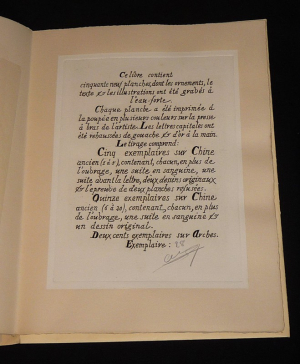 Ce livre contient
cinquante neuf planches, dont les ornements, le
texte & les illustrations ont été gravés à
l'eau-forte.
Chaque planche a été imprimée à
la poupée en plusieurs couleurs sur la presse
à bras de l'artiste. Les lettres capitales ont
été rehaussées de gouache & d'or à la main.
Le tirage comprend:
Cinq exemplaires sur Chine
ancien (1 à 5), contenant, chacun, en plus de
l'ouvrage, une suite en sanguine, une
suite avant la lettre, deux dessins originaux
& l'épreuve de deux planches refusées.
Quinze exemplaires sur Chine
ancien (6 à 20), contenant, chacun, en plus
de l'ouvrage, une suite en sanguine &
un dessin original.
Deux cents exemplaires sur Arches.
Exemplaire: 28